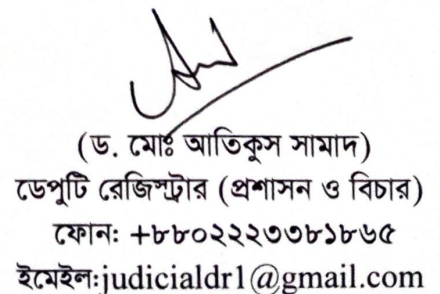 (ড. মোঃ আতিকুস সামাদ)
ডেপুটি রেজিস্ট্রার (প্রশাসন ও বিচার)
ফোনঃ +৮৮০২২২৩৩৮১৮৬৫
ইমেইলঃjudicialdr1@gmail.com